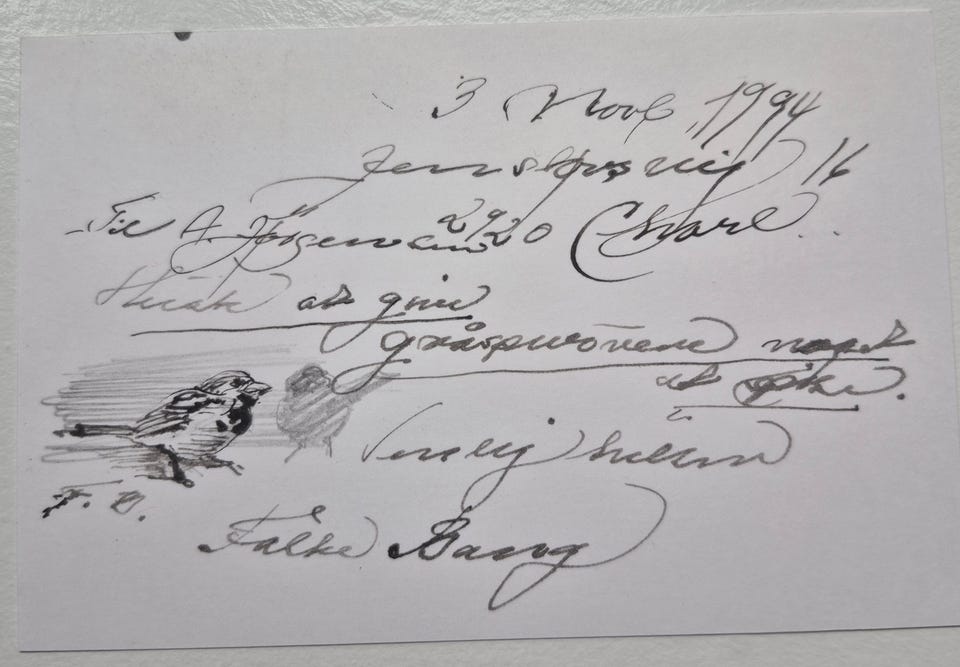 3 Nov 1994
16
Til A. Jørgensen 2920 Charl..
Husk at give
gråspurvene noget
at
Venlig hilsen
F. B.
Falke Bang